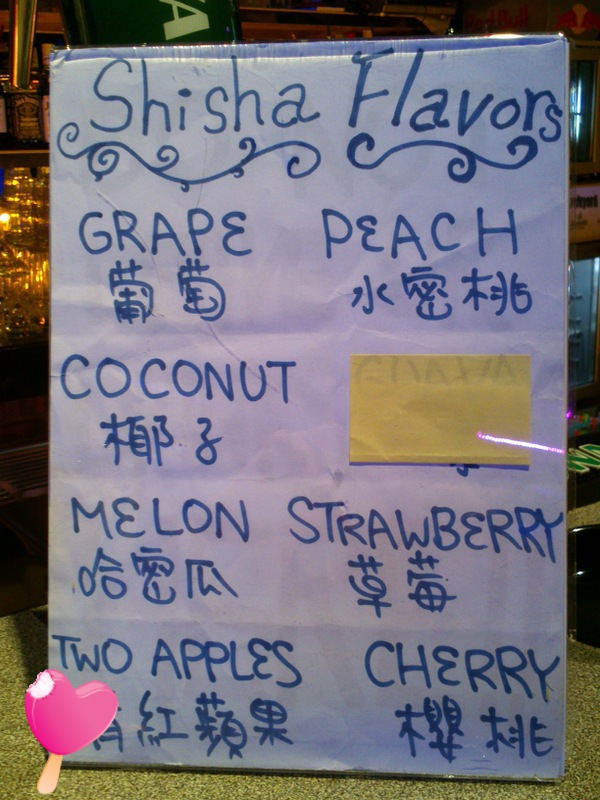 Shisha Flavors
GRAPE PEACH
葡萄 水密桃
COCONUT
椰子
MELON STRAWBERRY
哈密瓜 草莓
TWO APPLES CHERRY
紅蘋果 櫻桃
Red Bull